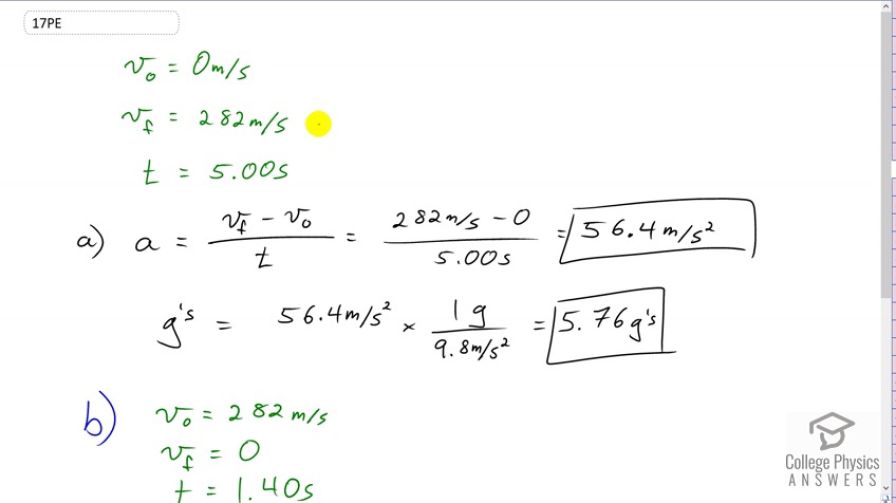 17PE
v₀ = 0 m/s
v_f = 282 m/s
t = 5.00s
a) a = (v_f − v₀)/t = (282 m/s − 0)/5.00s = 56.4 m/s²
g's = 56.4 m/s² × 1g/9.8 m/s² = 5.76 g's
b) v₀ = 282 m/s
v_f = 0
t = 1.40s
College Physics
ANSWERS